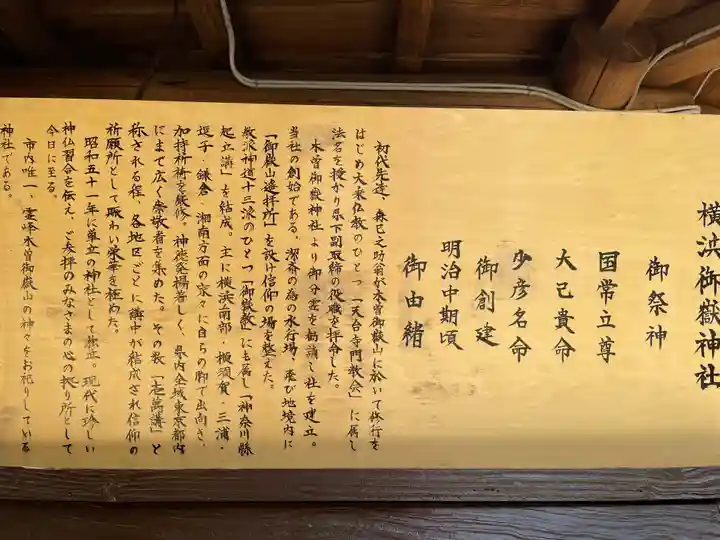 横浜御嶽神社
御祭神
国常立尊
大己貴命
少彦名命
御創建
明治中期頃
御由緒
初代先達、森巳之助翁が木曽御嶽山に於いて修行を
はじめ大乗仏教のひとつ「天台寺門教会」に属し
法名を授かり県下副取締の役職を拝命した。
木曽御嶽神社より御分霊を勧請し社を建立。
当社の創始である。潔斎の為の水行場、并び地境内に
「御嶽山遙拝所」を設け信仰の場を整えた。
教派神道十三派のひとつ「御嶽教」にも属し「神奈川縣
起立講」を結成。主に横浜南部・横須賀・三浦・
逗子・鎌倉・湘南方面の家々に自らの脚で出向き、
加持祈祷を厳修。神徳発揚著しく、県内全域東京都内
にまで広く崇敬者を集めた。その数「壱萬講」と
称される程、各地区ごとに講中が結成され信仰の
祈願所として賑わい栄華を極めた。
昭和五十一年に単立の神社として独立。現代に珍しい
神仏習合を伝え、ご参拝のみなさまの心の拠り所として
今日に至る。
市内唯一、霊峰木曽御嶽山の神々をお祀りしている
神社である。